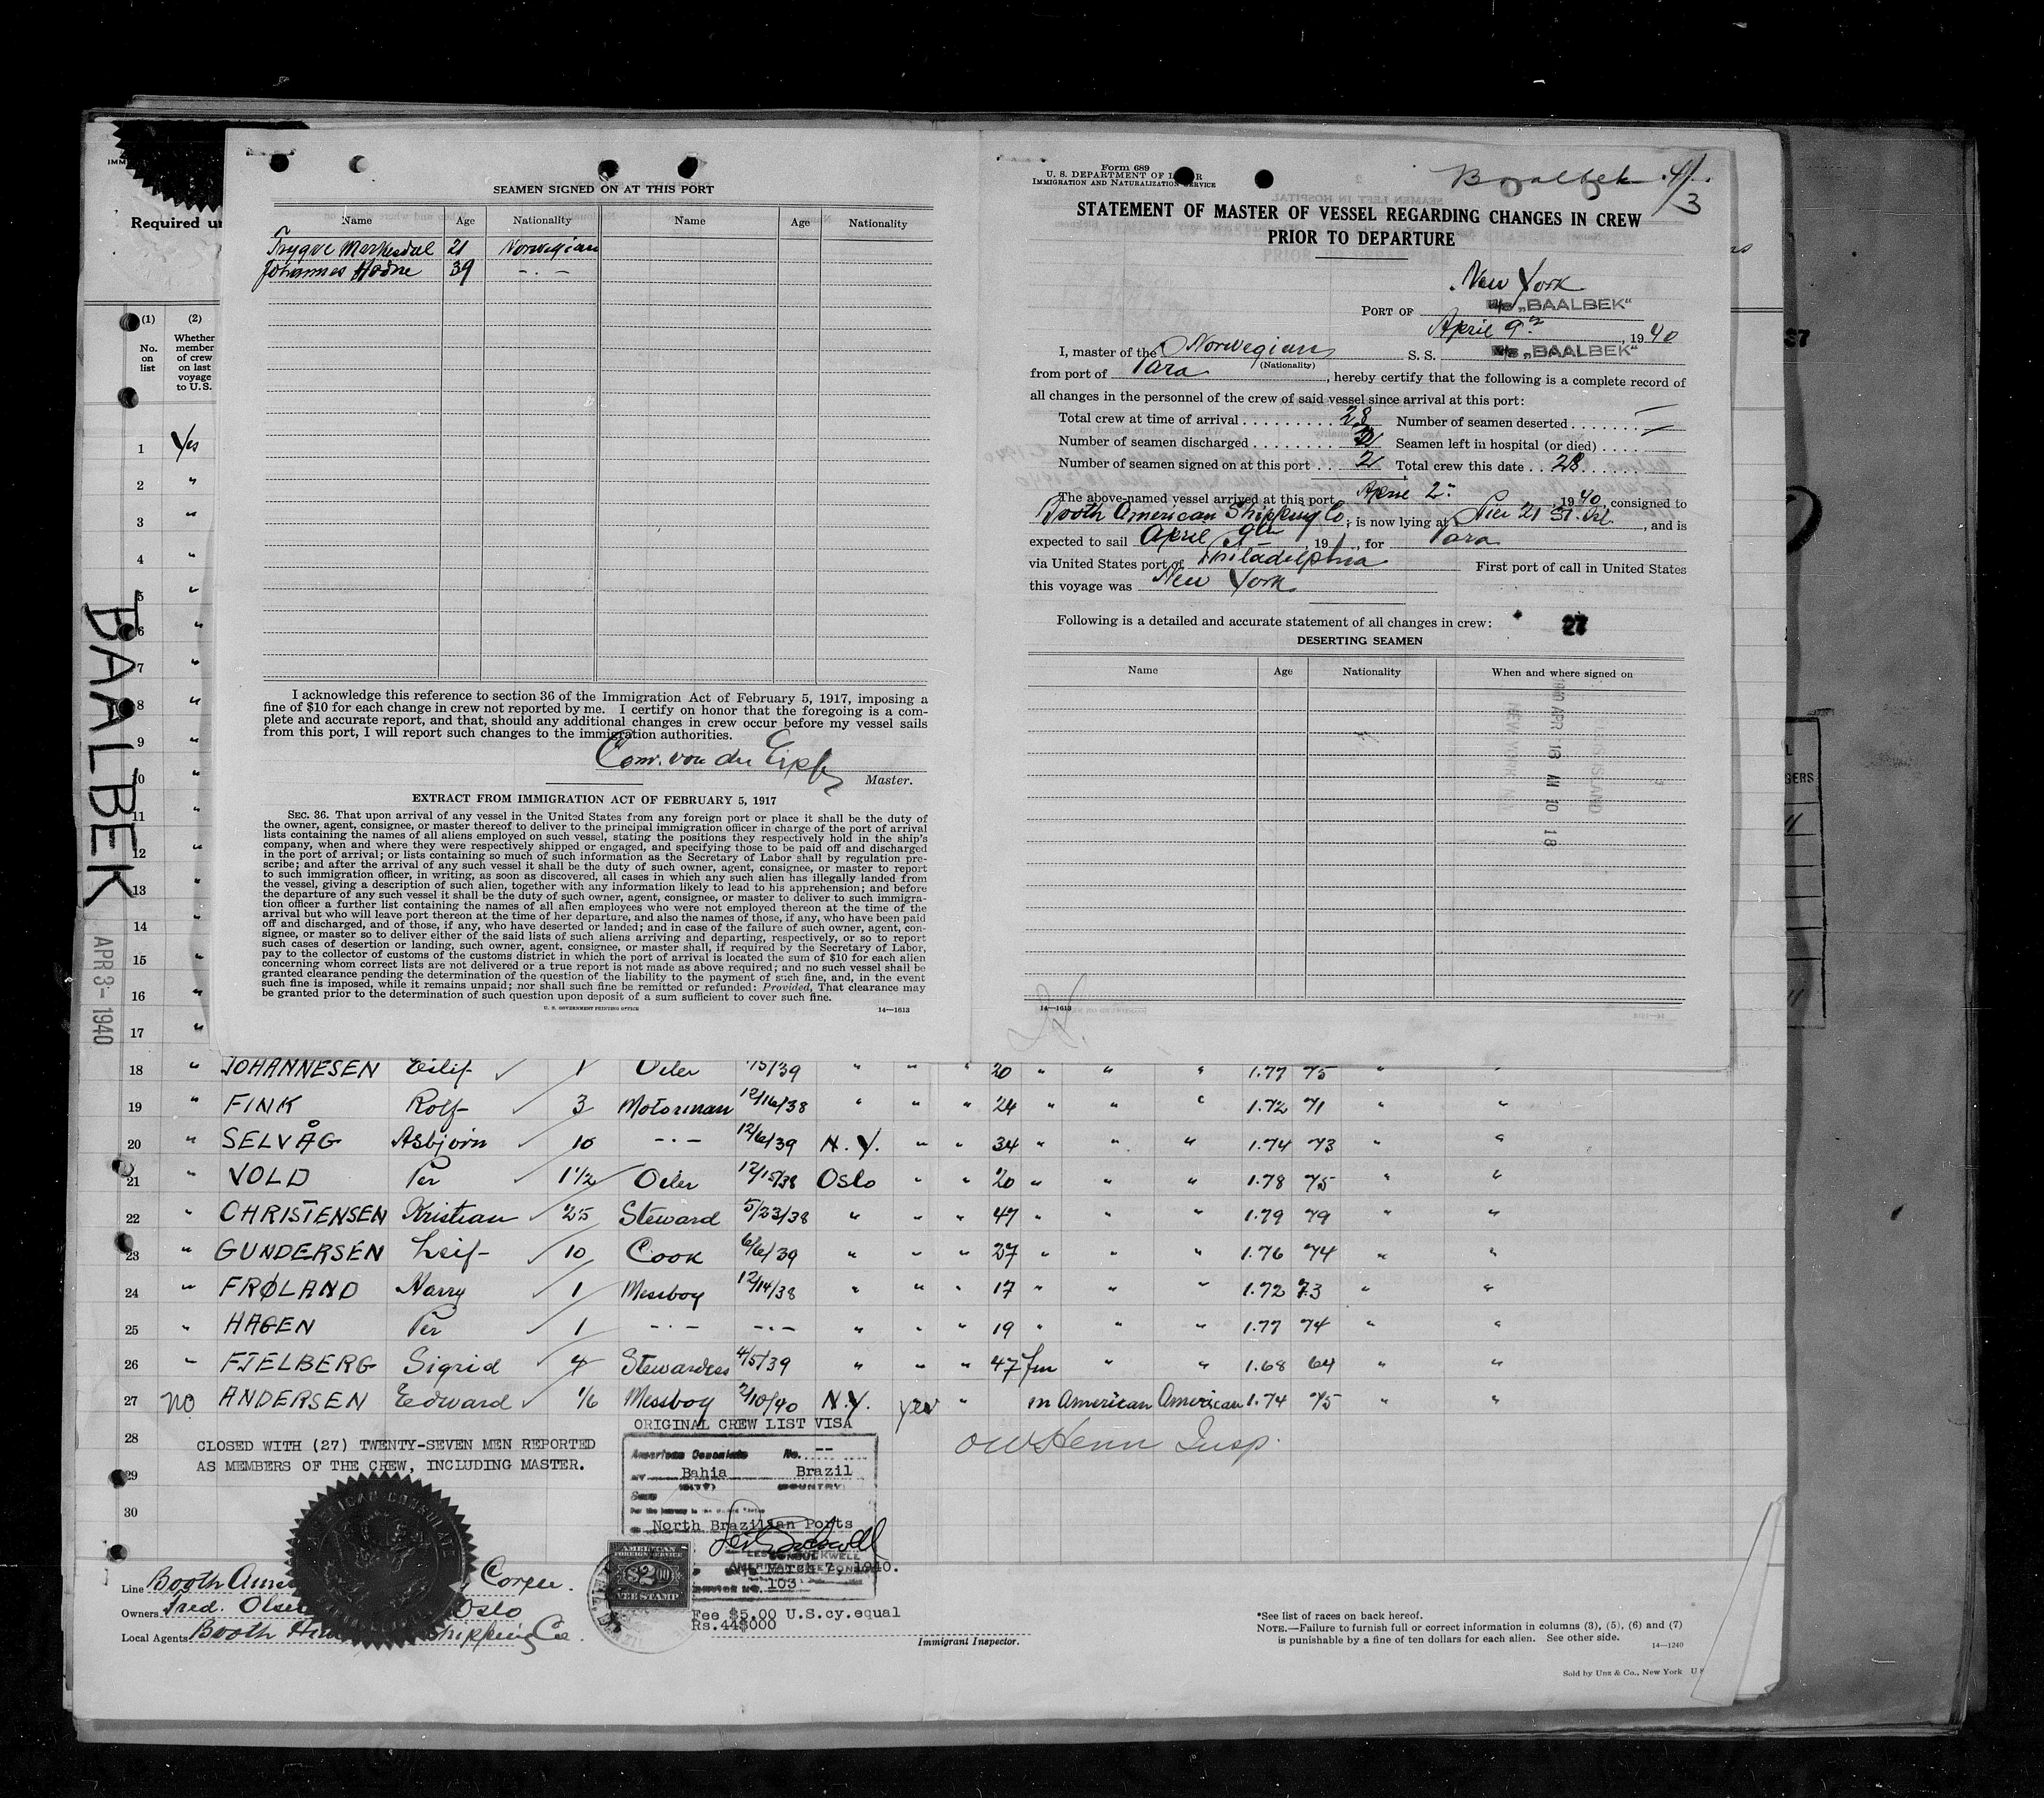 SEAMEN SIGNED ON AT THIS PORT
Name Age Nationality Name Age Nationality
Trygve 21 Norwegian
Johannes 39 -.-
I acknowledge this reference to section 36 of the Immigration Act of February 5, 1917, imposing a
fine of $10 for each change in crew not reported by me. I certify on honor that the foregoing is a com-
plete and accurate report, and that, should any additional changes in crew occur before my vessel sails
from this port, I will report such changes to the immigration authorities.
Master.
EXTRACT FROM IMMIGRATION ACT OF FEBRUARY 5, 1917
SEC. 36. That upon arrival of any vessel in the United States from any foreign port or place it shall be the duty of
the owner, agent, consignee, or master thereof to deliver to the principal immigration officer in charge of the port of arrival
lists containing the names of all aliens employed on such vessel, stating the positions they respectively hold in the ship's
company, when and where they were respectively shipped or engaged, and specifying those to be paid off and discharged
in the port of arrival; or lists containing so much of such information as the Secretary of Labor shall by regulation pre-
scribe; and after the arrival of any such vessel it shall be the duty of such owner, agent, consignee, or master to report
to such immigration officer, in writing, as soon as discovered, all cases in which any such alien has illegally landed from
the vessel, giving a description of such alien, together with any information likely to lead to his apprehension; and before
the departure of any such vessel it shall be the duty of such owner, agent, consignee, or master to deliver to such immigra-
tion officer a further list containing the names of all alien employees who were not employed thereon at the time of the
arrival but who will leave port thereon at the time of her departure, and also the names of those, if any, who have been paid
off and discharged, and of those, if any, who have deserted or landed; and in case of the failure of such owner, agent, con-
signee, or master so to deliver either of the said lists of such aliens arriving and departing, respectively, or so to report
such cases of desertion or landing, such owner, agent, consignee, or master shall, if required by the Secretary of Labor,
pay to the collector of customs of the customs district in which the port of arrival is located the sum of $10 for each alien
concerning whom correct lists are not delivered or a true report is not made as above required; and no such vessel shall be
granted clearance pending the determination of the question of the liability to the payment of such fine, and, in the event
such fine is imposed, while it remains unpaid; nor shall such fine be remitted or refunded: Provided, That clearance may
be granted prior to the determination of such question upon deposit of a sum sufficient to cover such fine.
U. S. GOVERNMENT PRINTING OFFICE 14—1613
Form 689
U. S. DEPARTMENT OF LABOR
IMMIGRATION AND NATURALIZATION SERVICE
Baalbek 4/3
STATEMENT OF MASTER OF VESSEL REGARDING CHANGES IN CREW
PRIOR TO DEPARTURE
New York
PORT OF M/S „BAALBEK"
April 9, 1940
I, master of the Norwegian S. S. M/S „BAALBEK"
(Nationality)
from port of Para, hereby certify that the following is a complete record of
all changes in the personnel of the crew of said vessel since arrival at this port:
Total crew at time of arrival 28 Number of seamen deserted —
Number of seamen discharged 2 Seamen left in hospital (or died) —
Number of seamen signed on at this port 2 Total crew this date 28
The above-named vessel arrived at this port April 2, 1940, consigned to
Booth American Shipping Co, is now lying at Pier 21, and is
expected to sail April 9th, 191, for Para
via United States port of Philadelphia First port of call in United States
this voyage was New York
Following is a detailed and accurate statement of all changes in crew: 27
DESERTING SEAMEN
Name Age Nationality When and where signed on
1940 APR 16 AM 10 18
14—1613
Required un
(1) (2)
No. on list
Whether member of crew on last voyage to U.S.
1 Yes
2 "
3 "
4 "
5 "
6 "
7 "
8 "
9 "
10 "
11 "
12 "
13 "
14 "
15 "
16 "
17 "
BAALBEK
APR 3- 1940
18 " JOHANNESEN Eilif 1 Oiler 15/39 " " " 20 " " " 1.77 75 " "
19 " FINK Rolf 3 Motorman 12/16/38 " " " 24 " " " 1.72 71 " "
20 " SELVÅG Asbjörn 10 -.- 12/6/39 N.Y. " " 34 " " " 1.74 73 " "
21 " VOLD Per 1½ Oiler 12/15/38 Oslo " " 20 " " " 1.78 75 " "
22 " CHRISTENSEN Kristian 25 Steward 5/23/38 " " " 47 " " " 1.79 79 " "
23 " GUNDERSEN Leif 10 Cook 6/6/39 " " " 27 " " " 1.76 74 " "
24 " FRØLAND Harry 1 Messboy 12/14/38 " " " 17 " " " 1.72 73 " "
25 " HAGEN Per 1 -.- -.- " " " 19 " " " 1.77 74 " "
26 " FJELBERG Sigrid 4 Stewardess 4/5/39 " " " 47 fm " " 1.68 64 " "
27 no ANDERSEN Edward 1/6 Messboy 2/10/40 N.Y. yes " m American American 1.74 75 " "
28
29
30
ORIGINAL CREW LIST VISA
CLOSED WITH (27) TWENTY-SEVEN MEN REPORTED
AS MEMBERS OF THE CREW, INCLUDING MASTER.
American Consulate No. --
Bahia Brazil
(CITY) (COUNTRY)
North Brazilian Ports
March 7, 1940.
103
AMERICAN FOREIGN SERVICE
$2.00
FEE STAMP
Fee $5.00 U.S.cy.equal
Rs.44$000
AMERICAN CONSULATE
Insp.
Line Booth Corpn.
Owners Fred. Olsen Oslo
Local Agents Booth Shipping Co.
Immigrant Inspector.
*See list of races on back hereof.
NOTE.—Failure to furnish full or correct information in columns (3), (5), (6) and (7)
is punishable by a fine of ten dollars for each alien. See other side.
14—1240
Sold by Unz & Co., New York